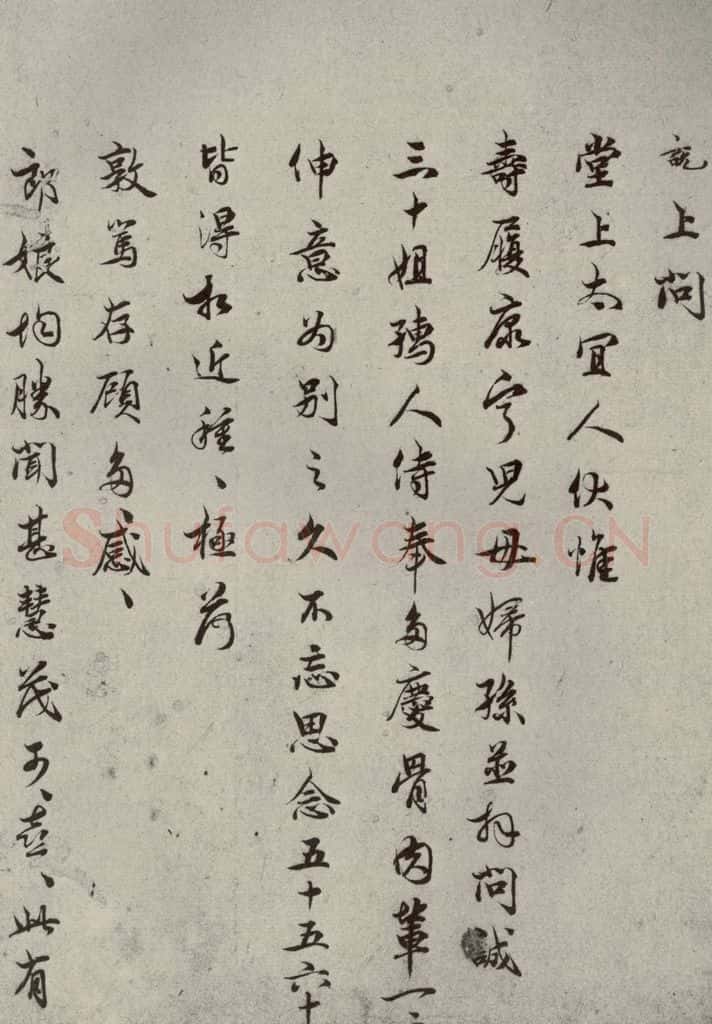 説上問
堂上太宜人伏惟
壽履康寧兒母婦孫並拜問誠
三十姐孺人侍奉多慶骨肉輩一二
伸意為別之久不忘思念五十五六十
皆得相近種、極荷
敦篤存顧多感、
郎娘均勝聞甚慧茂可、喜、此有
Shufawang.CN